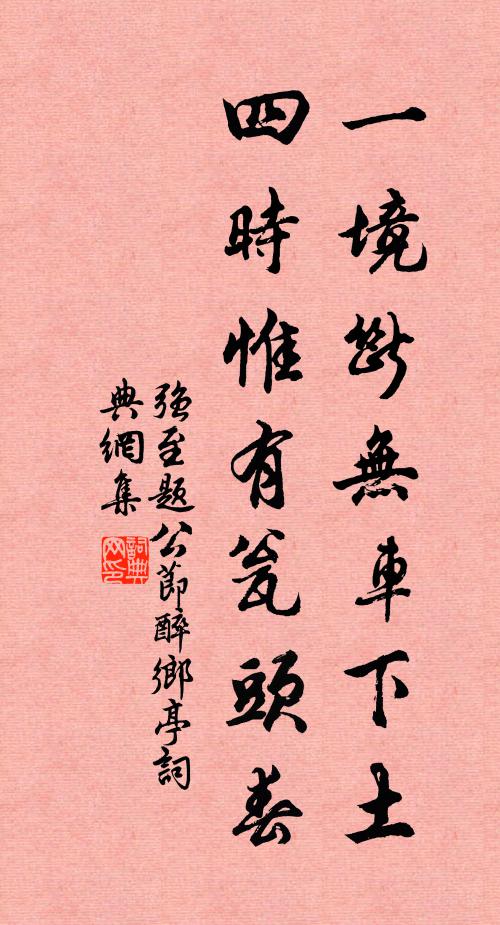 一境斷無車下土
四時惟有瓮頭春
強至題公節醉鄉亭詞
典網集
詞典網印